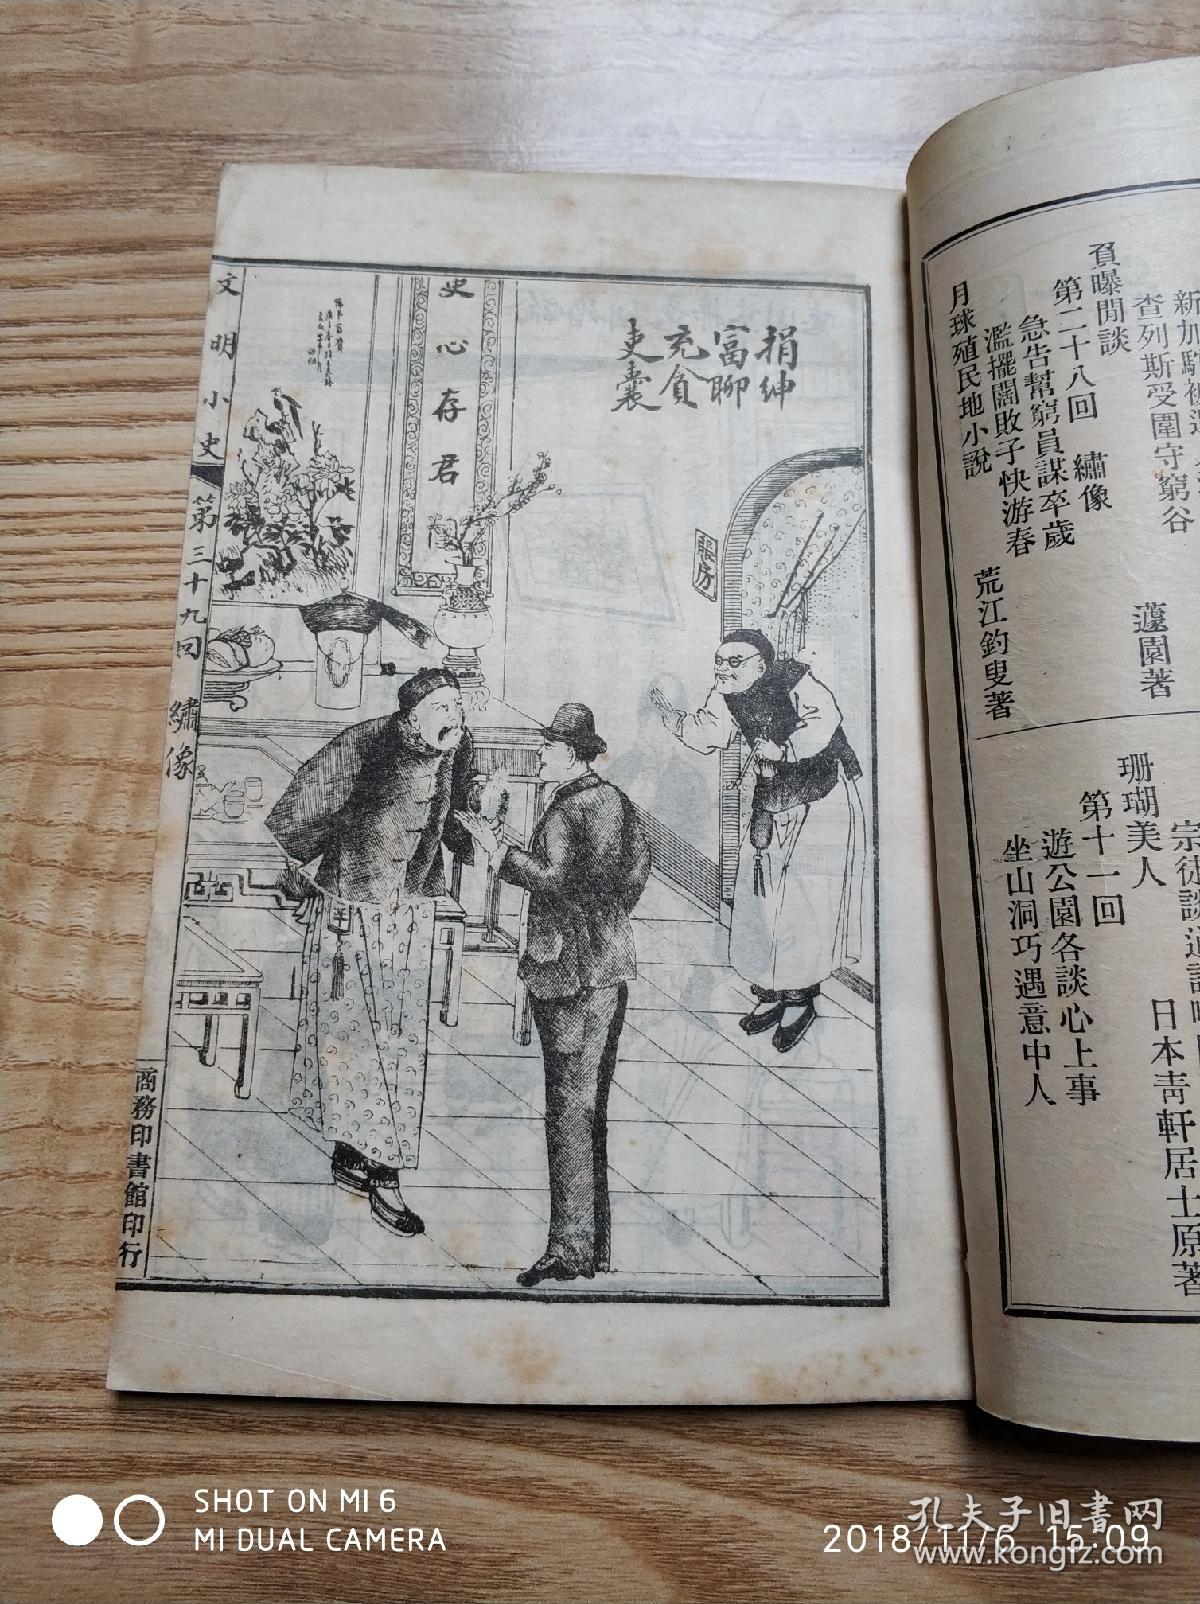 新加
查列斯受圍守窮谷
蘧園著
負曝閒談
第二十八回　繡像
急告幫窮員謀卒歲
濫擺闊敗子快游春
月球殖民地小說
荒江釣叟著
日本青軒居士原著
珊瑚美人
第十一回
遊公園各談心上事
坐山洞巧遇意中人
捐紳
富聊
充貪
吏囊
賬房
史心存君
文明小史
第三十九回　繡像
商務印書館印行
SHOT ON MI 6
MI DUAL CAMERA
2018/11/6 15:09
孔夫子旧书网
www.kongfz.com